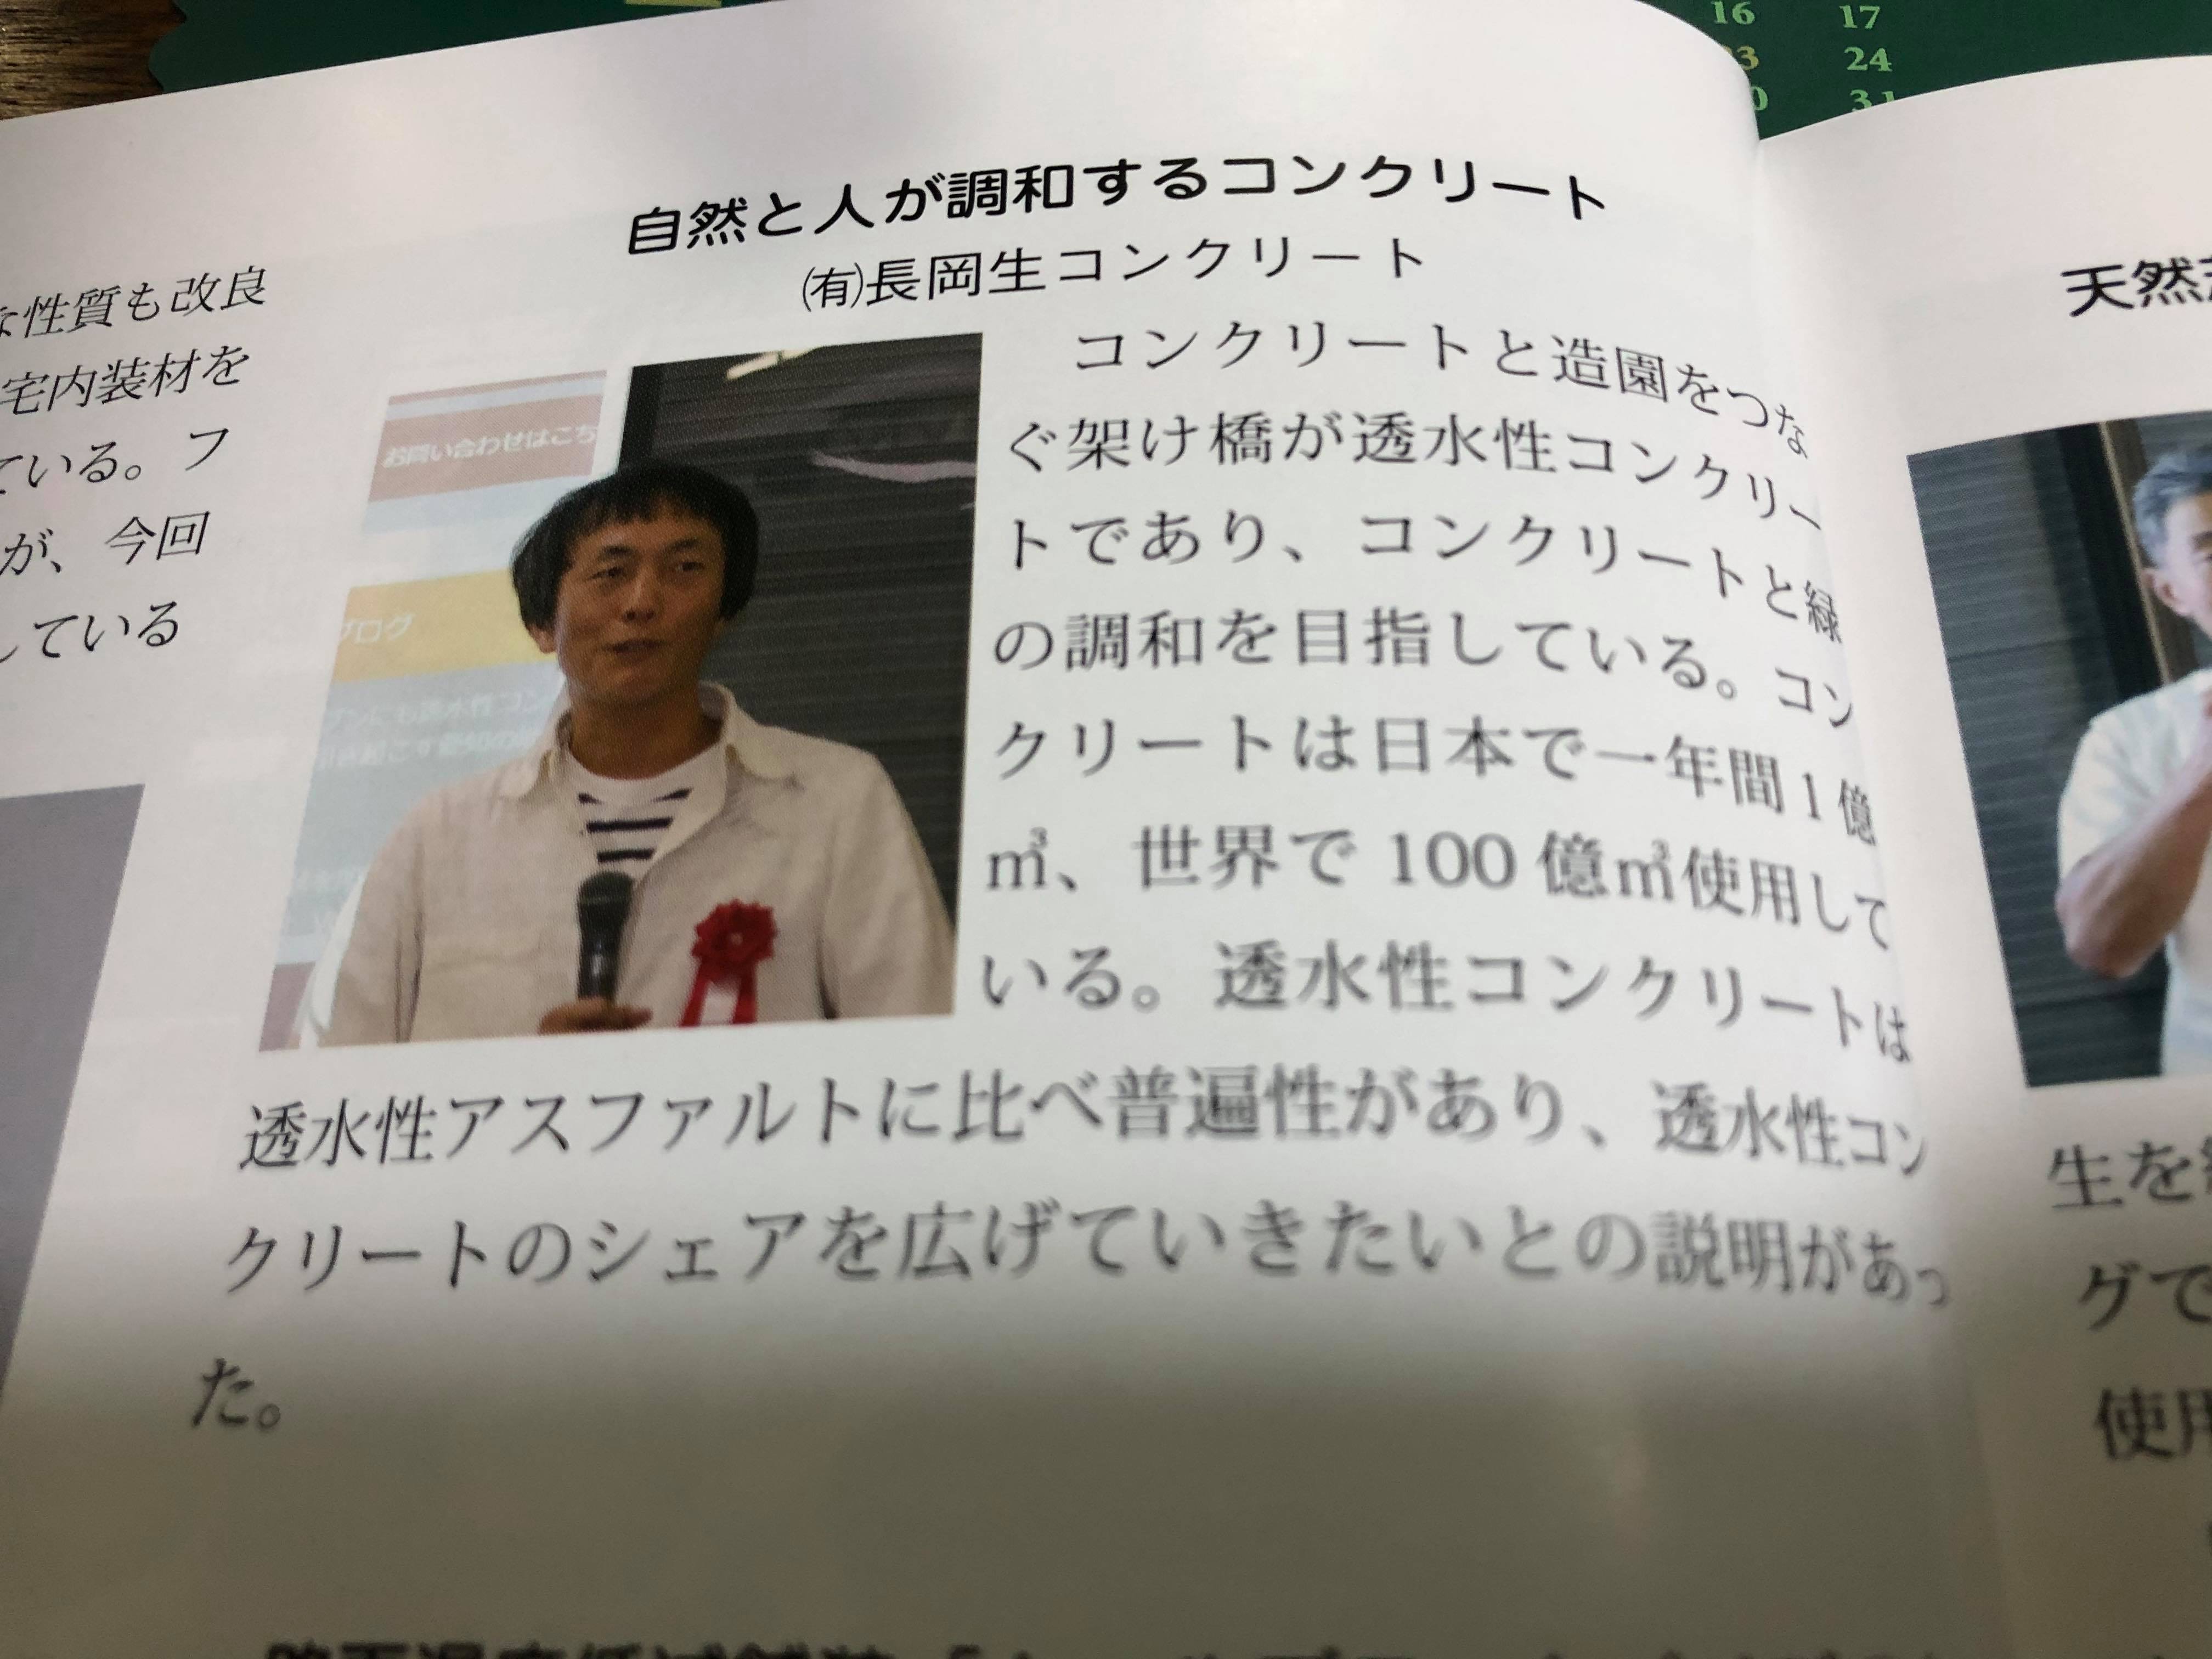 16 17
24
31
な性質も改良
宅内装材を
ている。フ
が、今回
している
自然と人が調和するコンクリート
㈲長岡生コンクリート
お問い合わせはこち
ブログ
コンクリートと造園をつな
ぐ架け橋が透水性コンクリー
トであり、コンクリートと緑
の調和を目指している。コン
クリートは日本で一年間1億
㎥、世界で100億㎥使用して
いる。透水性コンクリートは
透水性アスファルトに比べ普遍性があり、透水性コン
クリートのシェアを広げていきたいとの説明があっ
た。
天然
生を
グで
使用